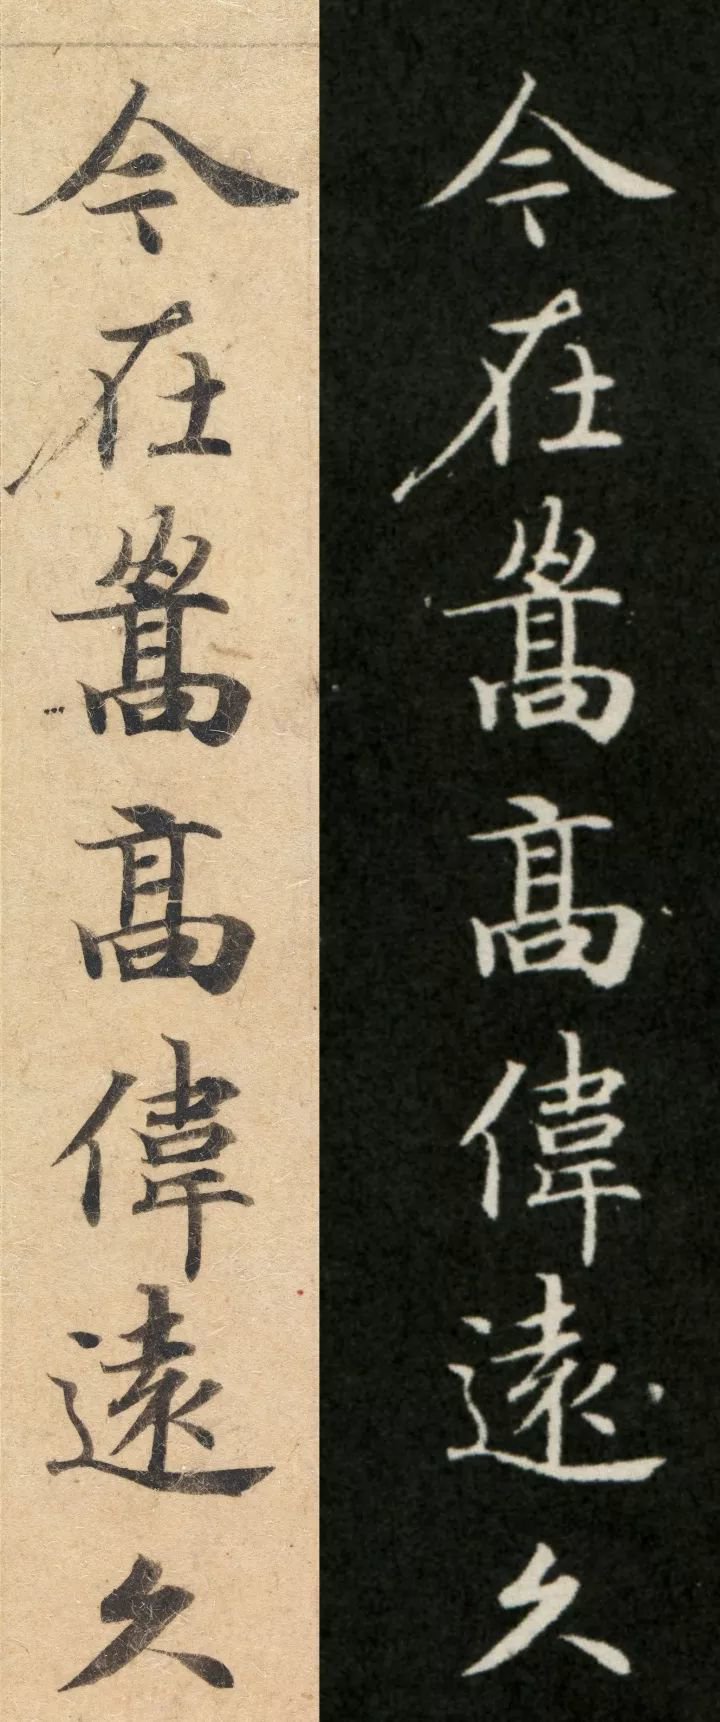 今在嵩高偉遠久
今在嵩高偉遠久